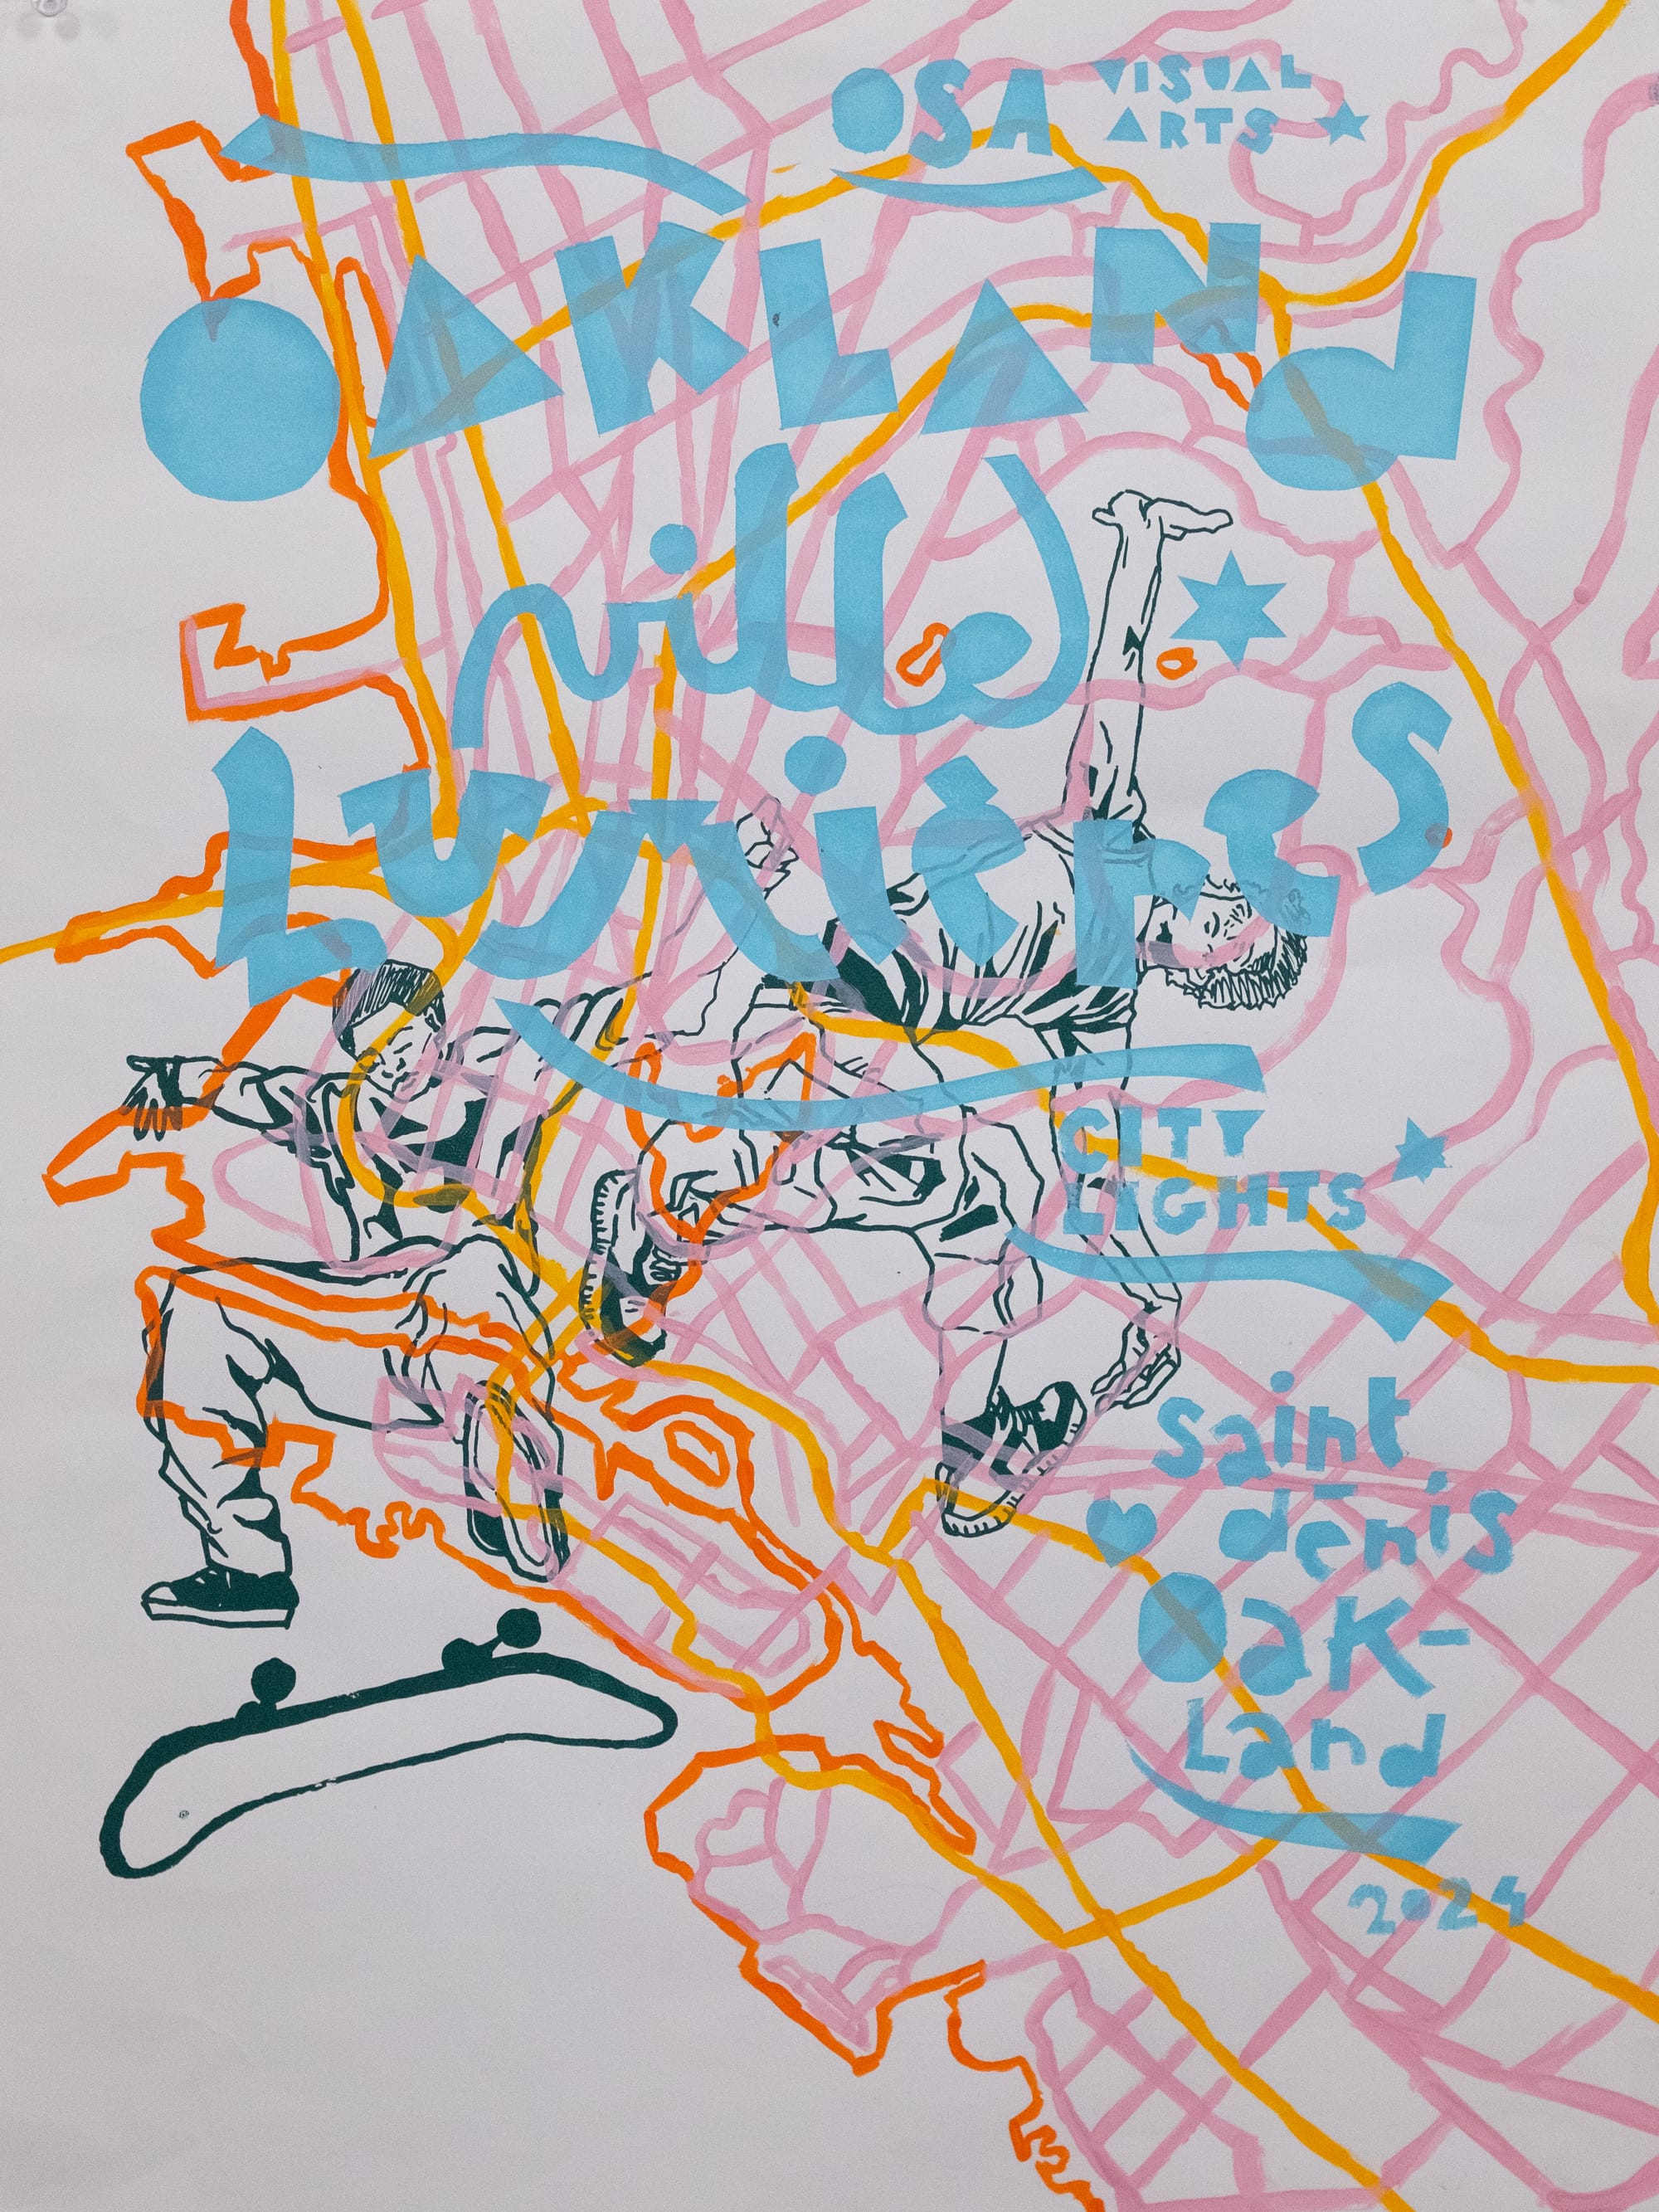 OSA VISUAL
ARTS
OAKLANd
ville
Lumières
CITY
LIGHTS
saint
denis
Oak-
Land
2024